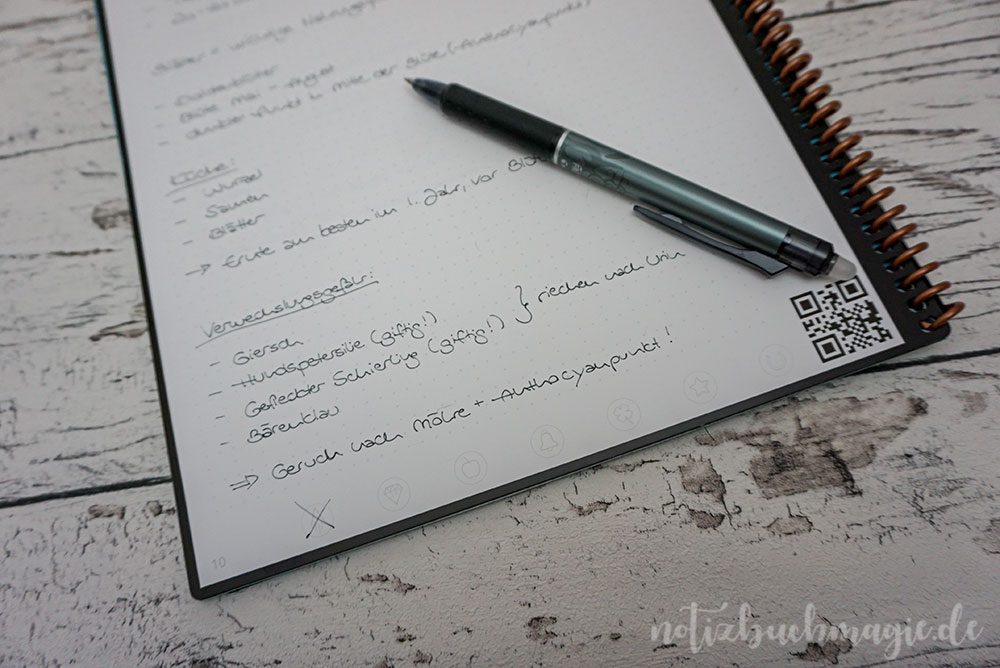 - Doldenblüter
- Blüte Mai - August
- dunkler Punkt in Mitte der Blüte (-Anthocyanpunkt)
Küche:
- Wurzel
- Samen
- Blätter
→ Ernte am besten im 1. Jahr, vor
Verwechslungsgefahr:
- Giersch
- Hundspetersilie (giftig!)
- Gefleckter Schierling (giftig!) } riechen nach Urin
- Bärenklau
⇒ Geruch nach Möhre + Anthocyanpunkt!
10
notizbuchmagie.de